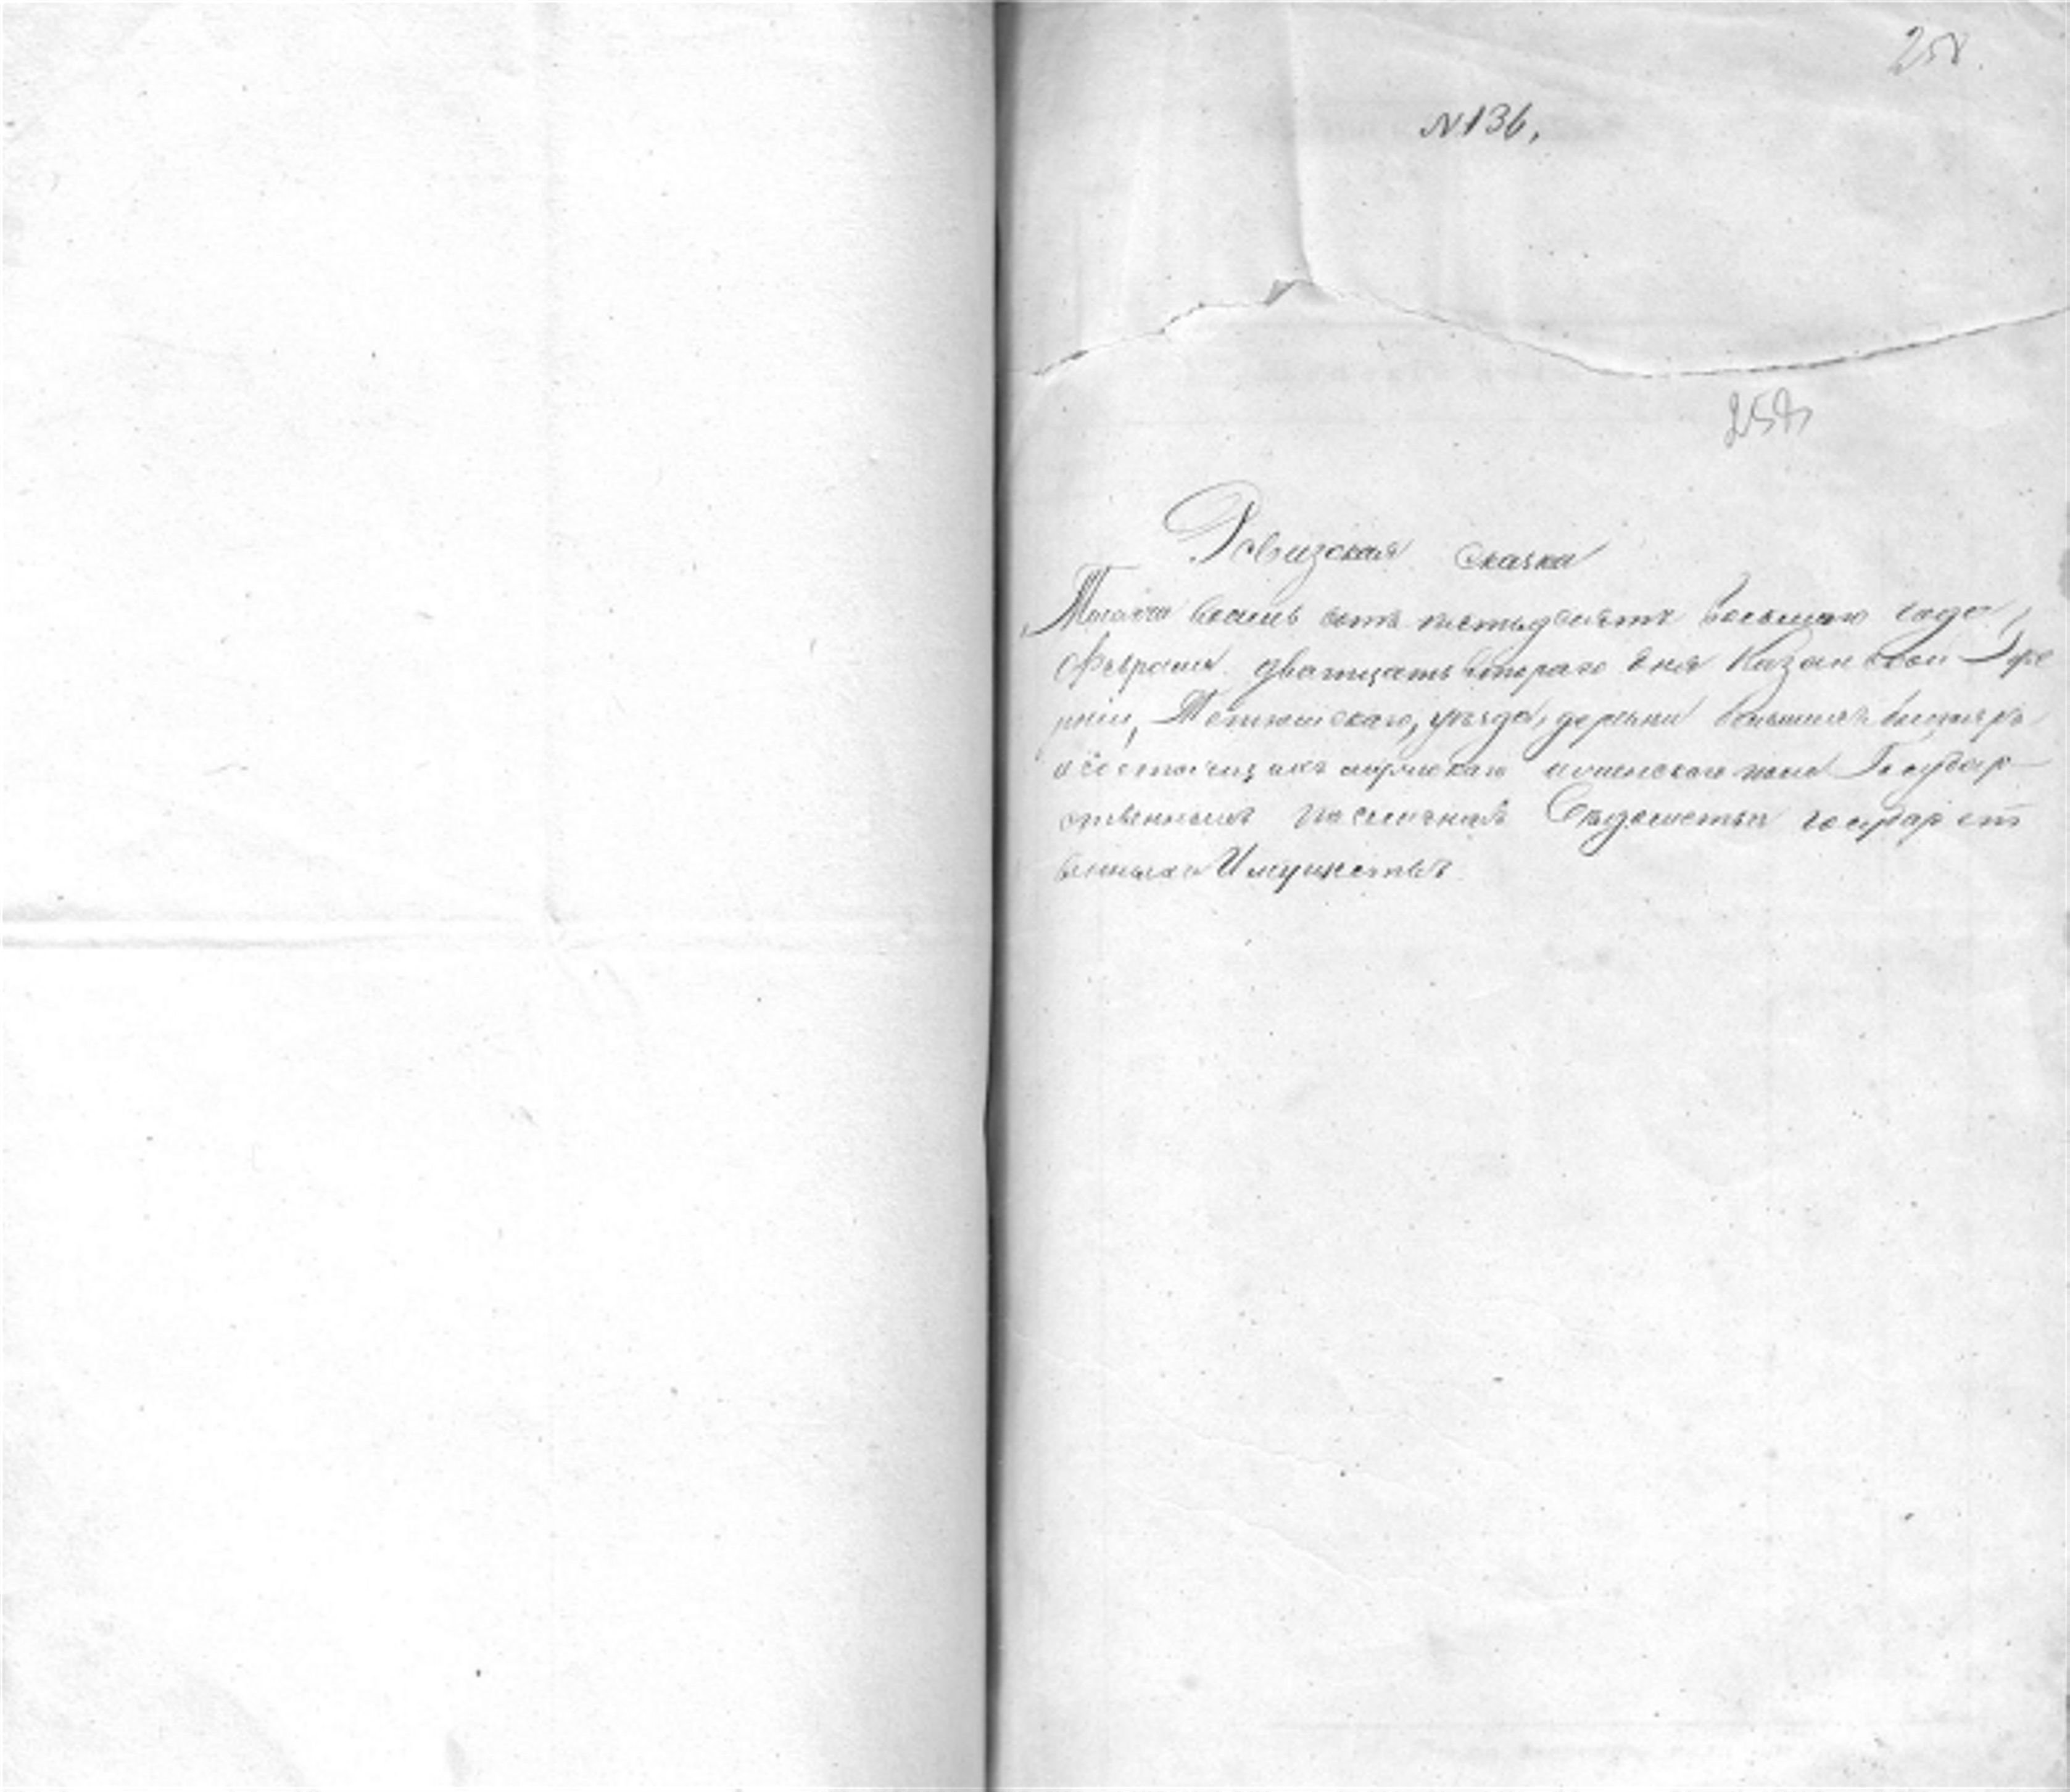 258.
N 136,
258
Ревизская Сказка
Тысяча восемь сотъ пятьдесятъ восьмаго года,
Февраля дватцать втораго дня Казанской Губе
рніи, Тетюшскаго, уѣзда, деревни большихъ
о состоящихъ мужскаго и женскаго пола Государ
ственныхъ Вѣдомства государст
венныхъ Имуществъ